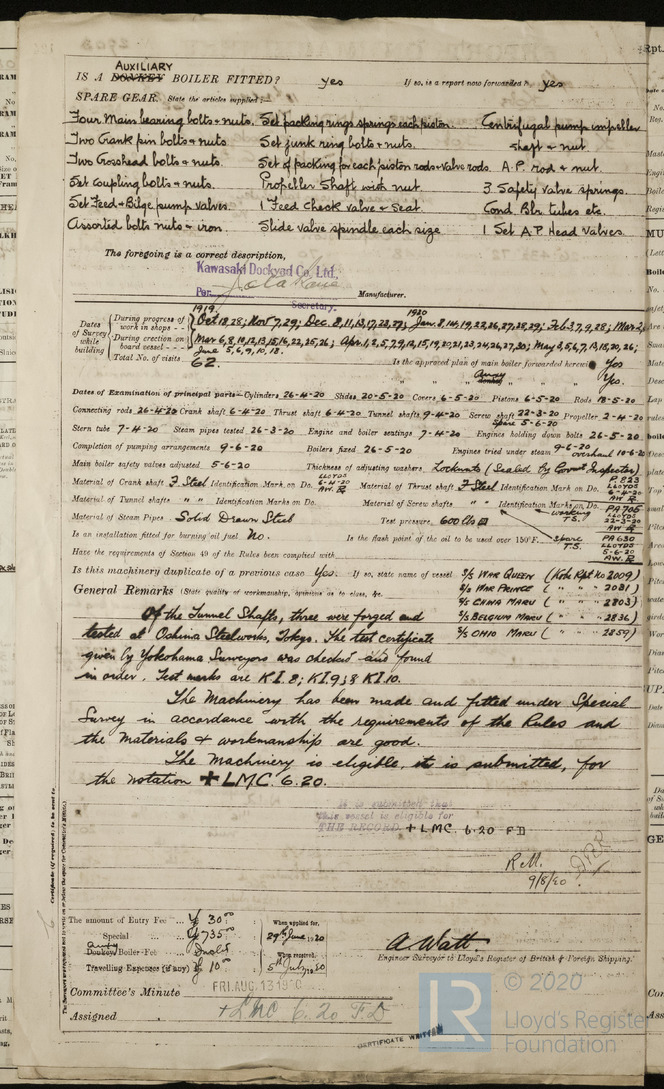 AUXILIARY
IS A DONKEY BOILER FITTED? yes If so, is a report now forwarded? yes
SPARE GEAR. State the articles supplied:—
Four Main bearing bolts & nuts. Set packing rings springs each piston. Centrifugal pump impeller
Two Crank pin bolts & nuts Set junk ring bolts & nuts. shaft & nut.
Two Crosshead bolts & nuts. Set of packing for each piston rods & valve rods. A.P. rod & nut.
Set coupling bolts & nuts. Propeller Shaft with nut. 3 Safety valve springs.
Set Feed & Bilge pump valves. 1 Feed Check valve & Seat. Cond. Blr. tubes etc.
Assorted bolts nuts & iron. Slide valve spindle each size 1 Set A.P. Head valves.
The foregoing is a correct description,
Kawasaki Dockyard Co., Ltd.,
Per
Secretary. Manufacturer.
1919. 1920
Dates of Survey while building
During progress of work in shops - -
During erection on board vessel - - -
Total No. of visits 62.
June 5, 6, 9, 10, 18.
Is the approved plan of main boiler forwarded herewith Yes
" " " donkey " " " Yes.
Dates of Examination of principal parts—Cylinders 26-4-20 Slides 20-5-20 Covers 6-5-20 Pistons 6-5-20 Rods 18-5-20
Connecting rods 26-4-20 Crank shaft 6-4-20 Thrust shaft 6-4-20 Tunnel shafts 9-4-20 Screw shaft 22-3-20 Propeller 2-4-20
Spare 5-6-20
Stern tube 7-4-20 Steam pipes tested 26-3-20 Engine and boiler seatings 7-4-20 Engines holding down bolts 26-5-20
Completion of pumping arrangements 9-6-20 Boilers fixed 26-5-20 Engines tried under steam 9-6-20
overhaul 10-6-20
Main boiler safety valves adjusted 5-6-20 Thickness of adjusting washers Locknuts (Sealed By Govmt Inspector)
Material of Crank shaft F. Steel Identification Mark on Do. LLOYDS 6-4-20 AW. R Material of Thrust shaft F. Steel Identification Mark on Do. P 823 LLOYDS 6-4-20 AW R
Material of Tunnel shafts " " Identification Marks on Do. Material of Screw shafts " " Identification Marks on Do. PA 705 LLOYDS 22-3-20 AW R
working T.S.
Material of Steam Pipes Solid Drawn Steel Test pressure 600 lbs
Is an installation fitted for burning oil fuel No. Is the flash point of the oil to be used over 150°F. Spare T.S. PA 630 LLOYDS 5-6-20 AW. R
Have the requirements of Section 49 of the Rules been complied with
Is this machinery duplicate of a previous case Yes. If so, state name of vessel S/S WAR QUEEN (Kobe Rpt No 2009)
General Remarks (State quality of workmanship, opinions as to class, &c. S/S WAR PRINCE ( " " " 2081)
S/S CHINA MARU ( " " " 2803)
S/S BELGIUM MARU ( " " " 2836)
S/S OHIO MARU ( " " " 2859)
Of the Tunnel Shafts, three were forged and
tested at Oshima Steelworks, Tokyo. The test certificate
given by Yokohama Surveyors was checked and found
in order. Test marks are KI. 8; KI. 9; & KI. 10.
The Machinery has been made and fitted under Special
Survey in accordance with the requirements of the Rules and
the materials & workmanship are good.
The Machinery is eligible, it is submitted, for
the notation + LMC. 6.20.
It is submitted that
this vessel is eligible for
THE RECORD + LMC. 6.20 FD
R.M.
9/8/20
The amount of Entry Fee ... ¥ 30.00 When applied for,
Special ... ¥ 735.00 29th June 1920
Donkey Boiler Fee ... When received,
Travelling Expenses (if any) ¥ 10.00 5th July 1920
A. Watt.
Engineer Surveyor to Lloyd's Register of British & Foreign Shipping.
Committee's Minute FRI. AUG. 13 1920
Assigned + LMC 6.20 F.D
CERTIFICATE WRITTEN
© 2020
LR
Lloyd's Register
Foundation